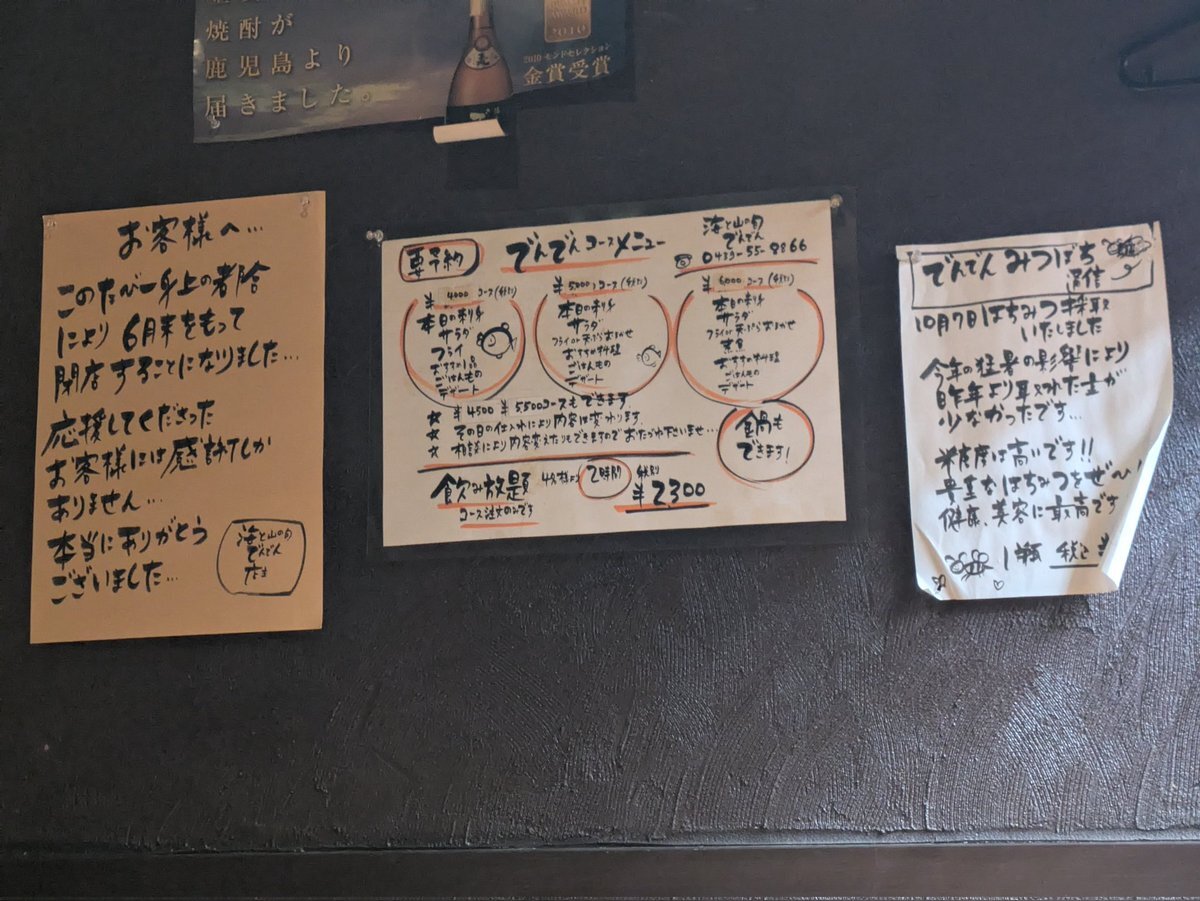 焼酎が
鹿児島より
届きました。
2010
2010 モンドセレクション
金賞受賞
お客様へ…
このたび一身上の都合
により 6月末をもって
閉店することになりました…
応援してくださった
お客様には感謝しか
ありません…
本当にありがとう
ございました…
海と山の旬
でんでん
要予約
でんでんコースメニュー
海と山の旬
でんでん
0439-55-9866
¥4000コース(税込)
本日の刺身
サラダ
フライ
おすすめ1品
ごはんもの
デザート
¥5000コース(税込)
本日の刺身
サラダ
フライor天ぷらおまかせ
おすすめ料理
ごはんもの
デザート
¥6000コース(税込)
本日の刺身
サラダ
フライor天ぷらおまかせ
煮魚
おすすめ料理
ごはんもの
デザート
★ ¥4500 ¥5500コースもできます
★ その日の仕入れにより内容は変わります
★ 相談により内容変えたりもできますのでおたづね下さいませ…
鍋も
できます!
飲み放題 4名様より 2時間 税別 ¥2300
コース注文のみです
でんでん みつばち
通信
10月7日はちみつ採取
いたしました
今年の猛暑の影響により
昨年より取れた量が
少なかったです…
糖度は高いです!!
貴重なはちみつをぜひ〜
健康、美容に最高です
1瓶 税込